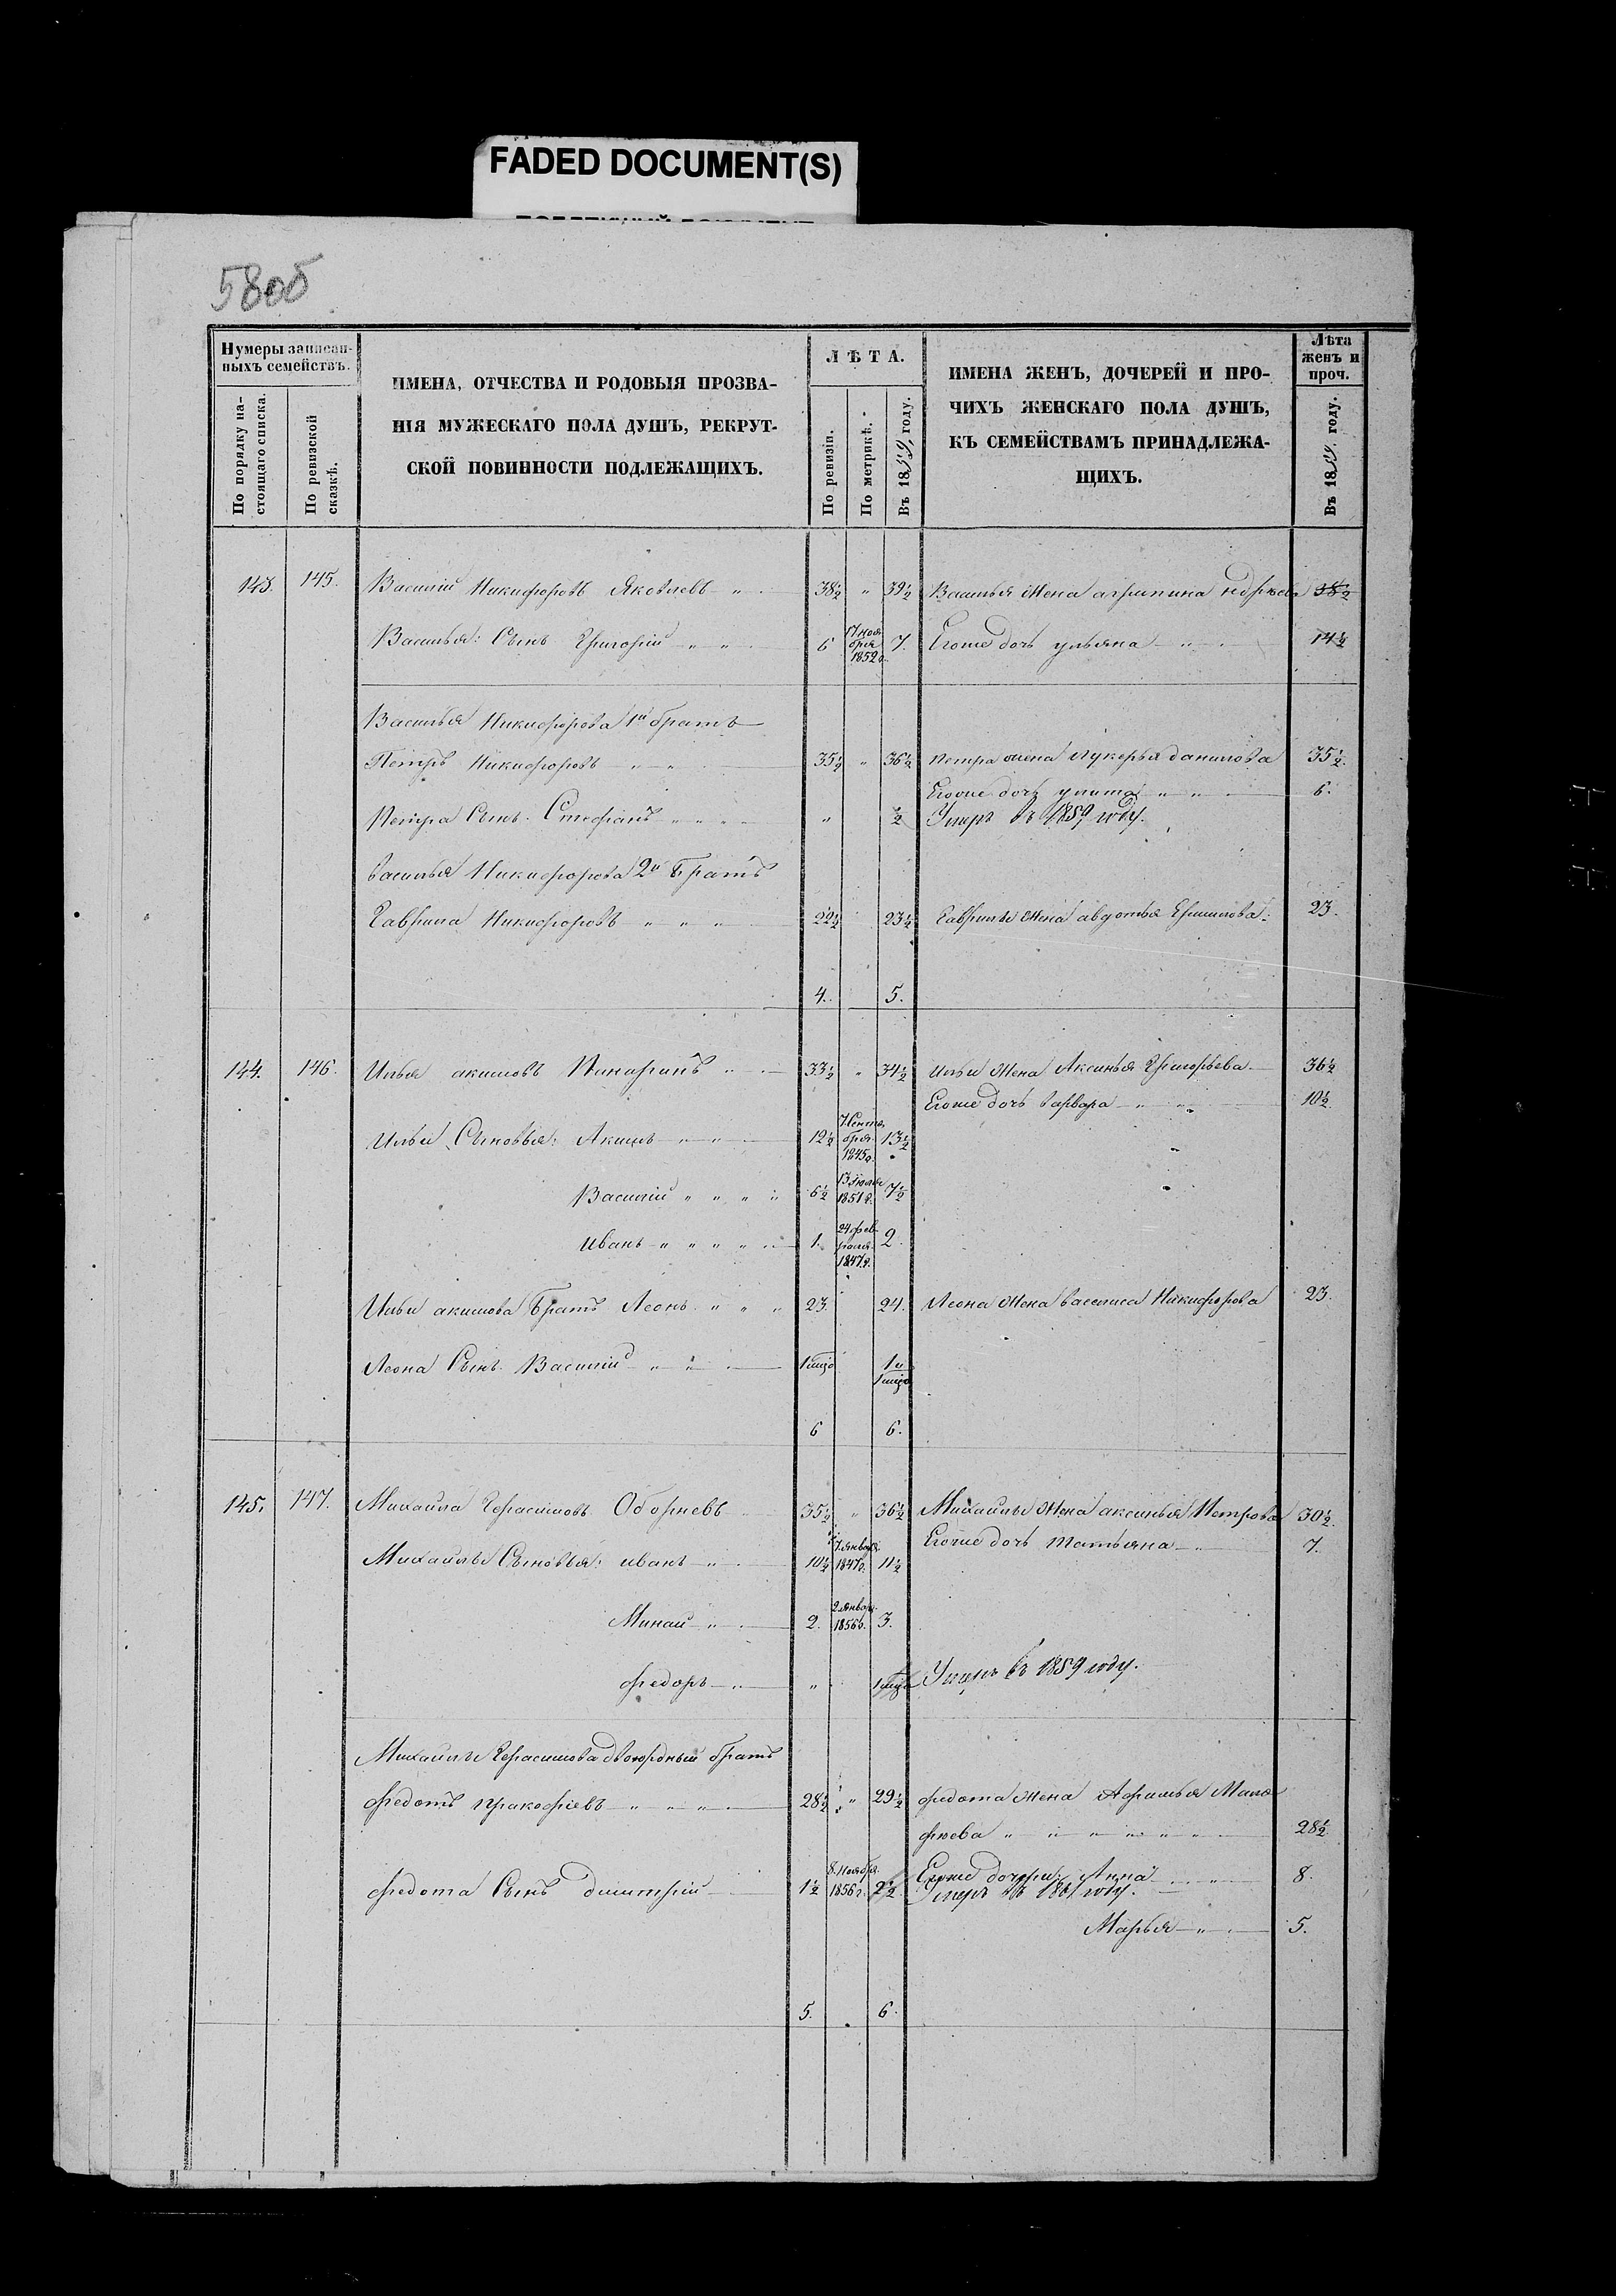 FADED DOCUMENT(S)
58об
Нумеры записан-
ныхъ семействъ.
По порядку на-
стоящаго списка.
По ревизской
сказкѣ.
ИМЕНА, ОТЧЕСТВА И РОДОВЫЯ ПРОЗВА-
НІЯ МУЖЕСКАГО ПОЛА ДУШЪ, РЕКРУТ-
СКОЙ ПОВИННОСТИ ПОДЛЕЖАЩИХЪ.
ЛѢТА.
По ревизіи.
По метрикѣ.
Въ 1859, году.
ИМЕНА ЖЕНЪ, ДОЧЕРЕЙ И ПРО-
ЧИХЪ ЖЕНСКАГО ПОЛА ДУШЪ,
КЪ СЕМЕЙСТВАМЪ ПРИНАДЛЕЖА-
ЩИХЪ.
Лѣта
женъ и
проч.
Въ 1859, году.
143. 145. Василій Никифоровъ Яковлевъ 38½ " 39½ Василья Жена агрипина 38½
Василья: Сынъ Григорій 6 17 ноя бря 1852 г. 7. Егоже дочь ульяна 14½
Василья Никифорова 1й братъ
Петръ Никифоровъ 35½ " 36½ Петра жена лукерья данилова 35½.
Егоже дочь улита 6.
Петра Сынъ Стефанъ " ½ Умеръ въ 1859 году.
Василья Никифорова 2й Братъ
Гаврила Никифоровъ 22½ 23½ Гаврилы Жена авдотья Ермилова. 23.
4. 5.
144. 146. Илья акимовъ 33½ " 34½ Ильи Жена Аксинья Григорьева 36½
Егоже дочь варвара 10½
Ильи Сыновья: Акимъ 12½ 7 Сентя бря 1845 г. 13½
Василій 6½ 13 Іюля 1851 г. 7½
иванъ 1. 24 фев раля 1847 г. 2.
Ильи акимова Братъ Леонъ 23 24. Леона Жена василиса Никифорова 23.
Леона Сынъ Василій 1 мцо 1 и 1 мцо
6 6.
145. 147. Михайла Герасимовъ Оборневъ 35½ " 36½ Михайлы Жена аксинья Петрова 30½.
Егоже дочь Татьяна 7.
Михайлы Сыновья: иванъ 10½ 7 января 1847 г. 11½
Минай 2. 2 январ. 1856 г. 3.
федоръ " Умеръ въ 1859 году.
Михайлы Герасимова двоюрдный братъ
Федотъ пракофіевъ 28½ " 29½ федота Жена Афимья Мало
фѣева 28½
федота Сынъ дмитрій 1½ 8 Ноябр. 1856 г. 2½ Егоже дочери Анна 8.
Умеръ въ 1861 году.
Марья 5.
5. 6.